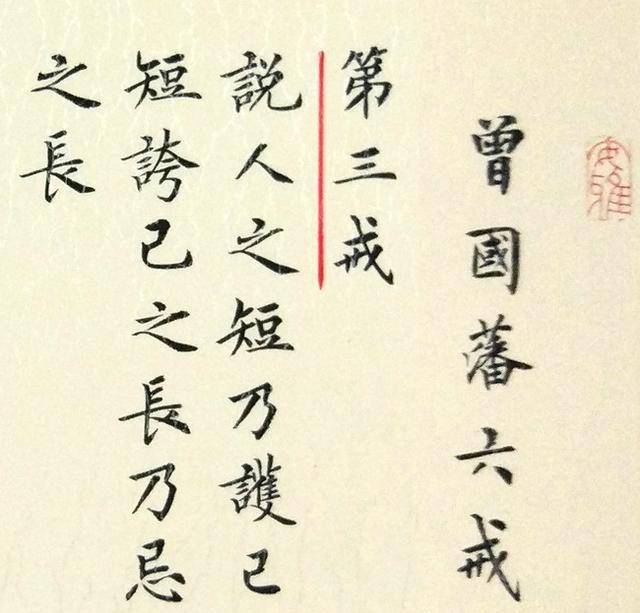 曾國藩六戒
第三戒
説人之短乃護己
短誇己之長乃忌
之長